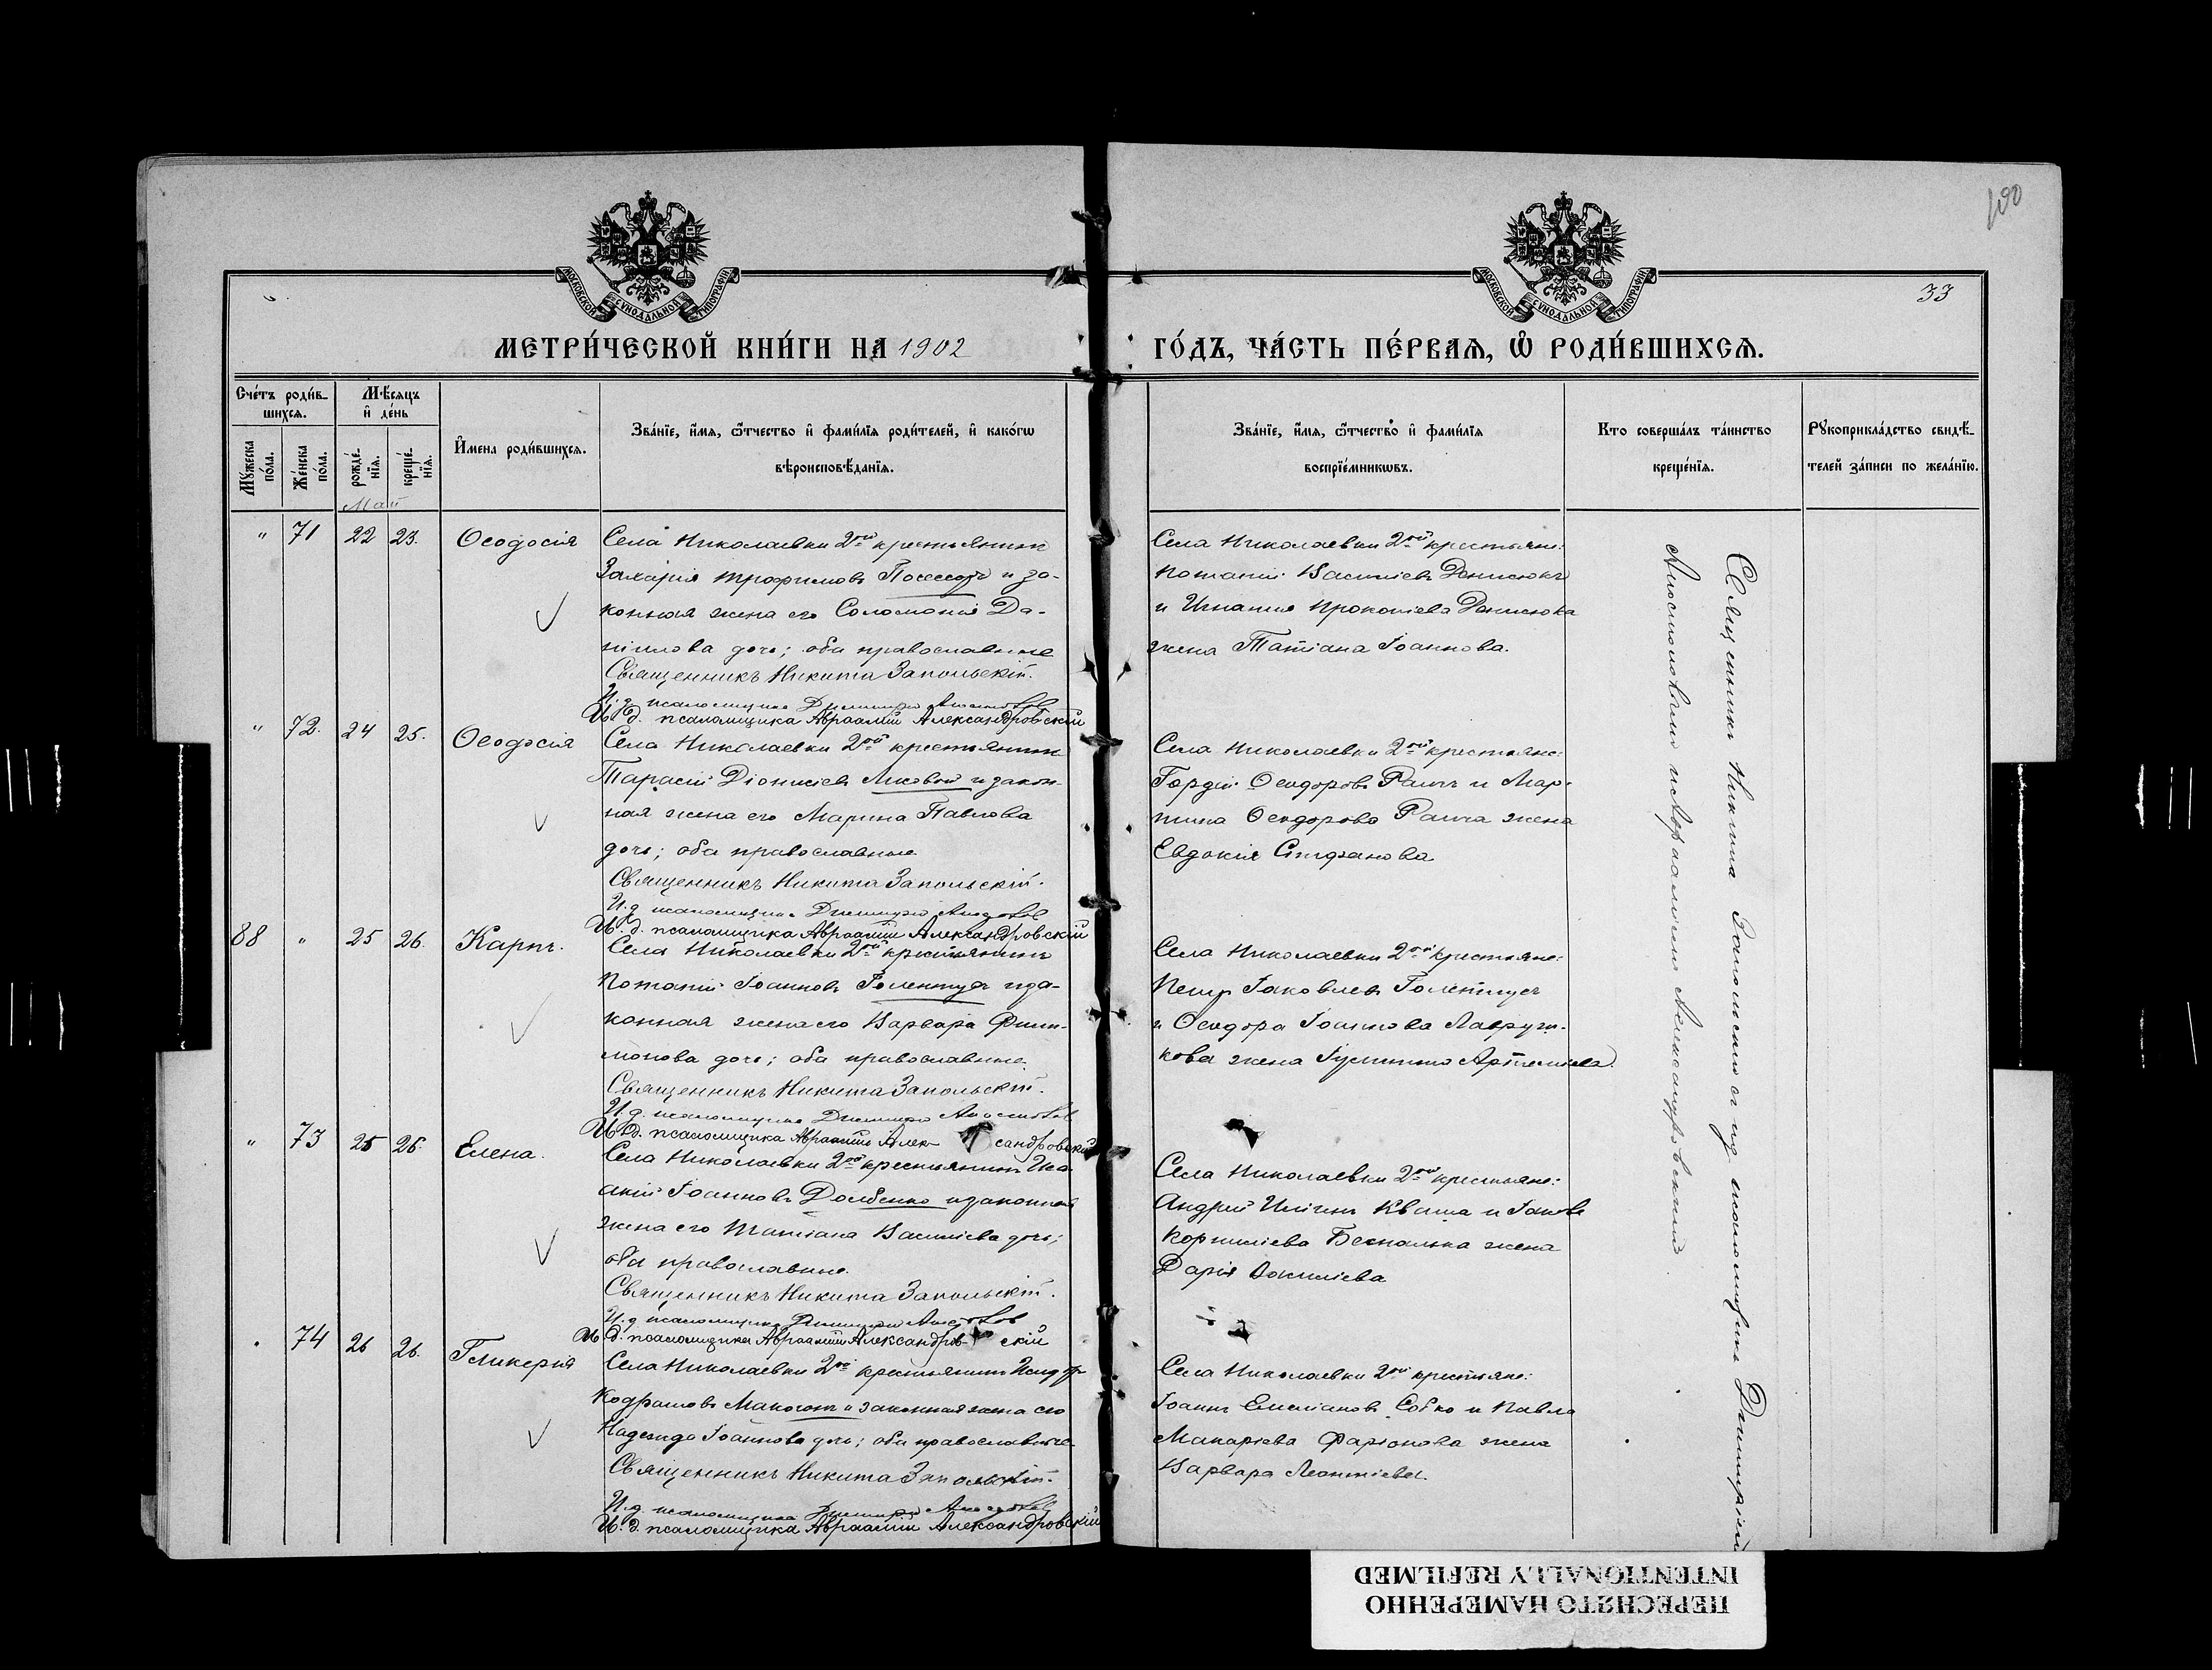 100
33
МОСКОВСКОЙ СУНОДАЛЬНОЙ ТИПОГРАФІИ
МОСКОВСКОЙ СУНОДАЛЬНОЙ ТИПОГРАФІИ
МЕТРИ́ЧЕСКОЙ КНИ́ГИ НА 1902
ГО́ДЪ, ЧА́СТЬ ПЕ́РВАЯ, Ѽ РОДИ́ВШИХСЯ.
Сче́тъ роди́в-
шихся.
Мꙋ́жеска
по́ла.
Же́нска
по́ла.
Мѣ́сяцъ
и҆ де́нь
рожде́-
нїя.
креще́-
нїя.
Май
И҆мена роди́вшихся.
Зва́нїе, и҆́мя, ѻ҆́тчество и҆ фами́лїя роди́телей, и҆ како́гѡ
вѣроисповѣ́данїя.
Зва́нїе, и҆́мя, ѻ҆́тчество и҆ фами́лїя
воспрїе́мникѡвъ.
Кто соверша́лъ та́инство
креще́нїя.
Рꙋкоприкла́дство свидѣ́-
телей за́писи по жела́нїю.
" 71 22 23. Ѳеодосія
Села Николаевки 2ой крестьянинъ
Захарія Трофимовъ Посессоръ и за-
конная жена его Соломонія Да-
ніилова дочь; оба православные
Священникъ Никита Запольскій.
И. д. псаломщика Димитрій
И. д. псаломщика Авраамій Александровскій
Села Николаевки 2ой крестьяне:
Потапій Василіевъ Денисюкъ
и Игнатія Прокопіева Денисюка
жена Татіана Іоаннова.
" 72. 24 25. Ѳеодосія
Села Николаевки 2ой крестьянинъ
Тарасій Діонисіевъ Лисовой и закон-
ная жена его Марина Павлова
дочь; оба православные
Священникъ Никита Запольскій.
И. д. псаломщика Димитрій
И. д. псаломщика Авраамій Александровскій
Села Николаевки 2ой крестьяне:
Гордій Ѳеодоровъ Раичъ и Мар-
тина Ѳеодорова Раича жена
Евдокія Стефанова
88 " 25 26. Карпъ.
Села Николаевки 2ой крестьянинъ
Потапій Іоанновъ Голентусъ и за-
конная жена его Варвара Фили-
монова дочь; оба православные.
Священникъ Никита Запольскій.
И. д. псаломщика Димитрій
И. д. псаломщика Авраамій Александровскій
Села Николаевки 2ой крестьяне:
Петръ Іаковлевъ Голентусъ
и Ѳеодора Іоаннова
жена Артеміева.
" 73 25 26. Елена.
Села Николаевки 2ой крестьянинъ Иса-
акій Іоанновъ Долбенко и законная
жена его Татіана Василіева дочь;
оба православные.
Священникъ Никита Запольскій.
И. д. псаломщика Димитрій
И. д. псаломщика Авраамій Александровскій
Села Николаевки 2ой крестьяне:
Андрей Иліинъ Кваша и Іакова
Корниліева жена
Дарія
74 26 26. Гликерія
Села Николаевки 2ой крестьянинъ Исидоръ
Кодратовъ Макогонъ и законная жена его
Надежда Іоаннова дочь; оба православные
Священникъ Никита Запольскій.
И. д. псаломщика Димитрій
И. д. псаломщика Авраамій Александровскій
Села Николаевки 2ой крестьяне:
Іоаннъ Емиліановъ Собко и Павла
Макаріева Фаріонова жена
Варвара Леонтіева.
Священникъ Никита Запольскій съ и. д. псаломщика Димитріемъ
и Авраамомъ Александровскимъ
ПЕРЕСНЯТО НАМЕРЕННО
INTENTIONALLY REFILMED